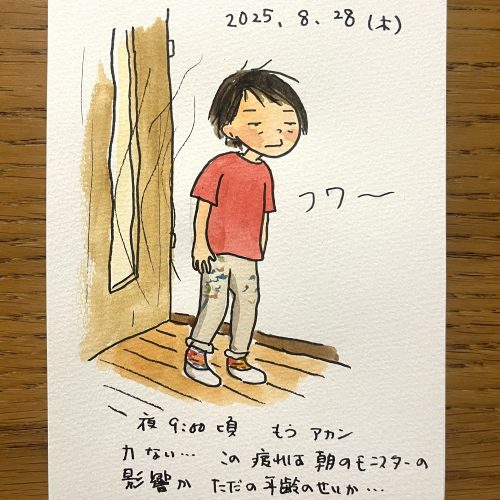 2025. 8. 28 (木)
フワ〜
夜 9:00 頃 もう アカン
力ない… この 疲れは 朝のモンスターの
影響か ただの年齢のせいか…